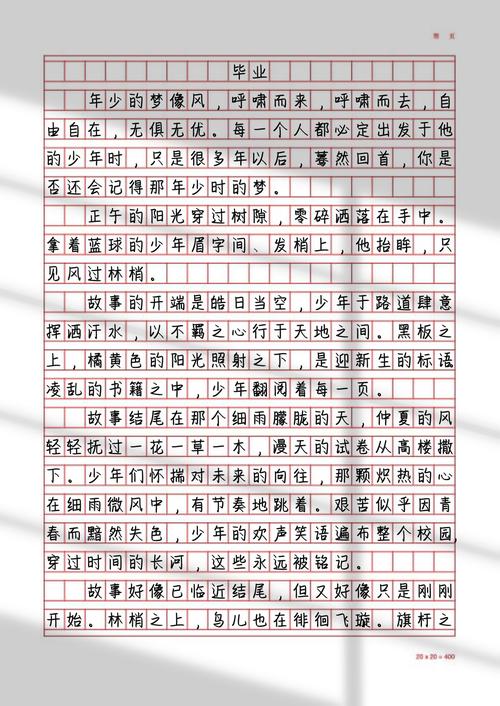 页
毕业
年少的梦像风，呼啸而来，呼啸而去，自
由自在，无惧无优。每一个人都必定出发于他
的少年时，只是很多年以后，蓦然回首，你是
否还会记得那年少时的梦。
正午的阳光穿过树隙，零碎洒落在手中。
拿着蓝球的少年眉字间、发梢上，他抬眸，只
见风过林梢。
故事的开端是皓日当空，少年于路道肆意
挥洒汗水，以不羁之心行于天地之间。黑板之
上，橘黄色的阳光照射之下，是迎新生的标语
凌乱的书籍之中，少年翻阅着每一页。
故事结尾在那个细雨朦胧的天，仲夏的风
轻轻抚过一花一草一木，漫天的试卷从高楼撒
下。少年们怀揣对未来的向往，那颗炽热的心
在细雨微风中，有节奏地跳着。艰苦似乎因青
春而黯然失色，少年的欢声笑语遍布整个校园，
穿过时间的长河，这些永远被铭记。
故事好像已临近结尾，但又好像只是刚刚
开始。林梢之上，鸟儿也在徘徊飞璇。旗杆之
20 x 20 = 400